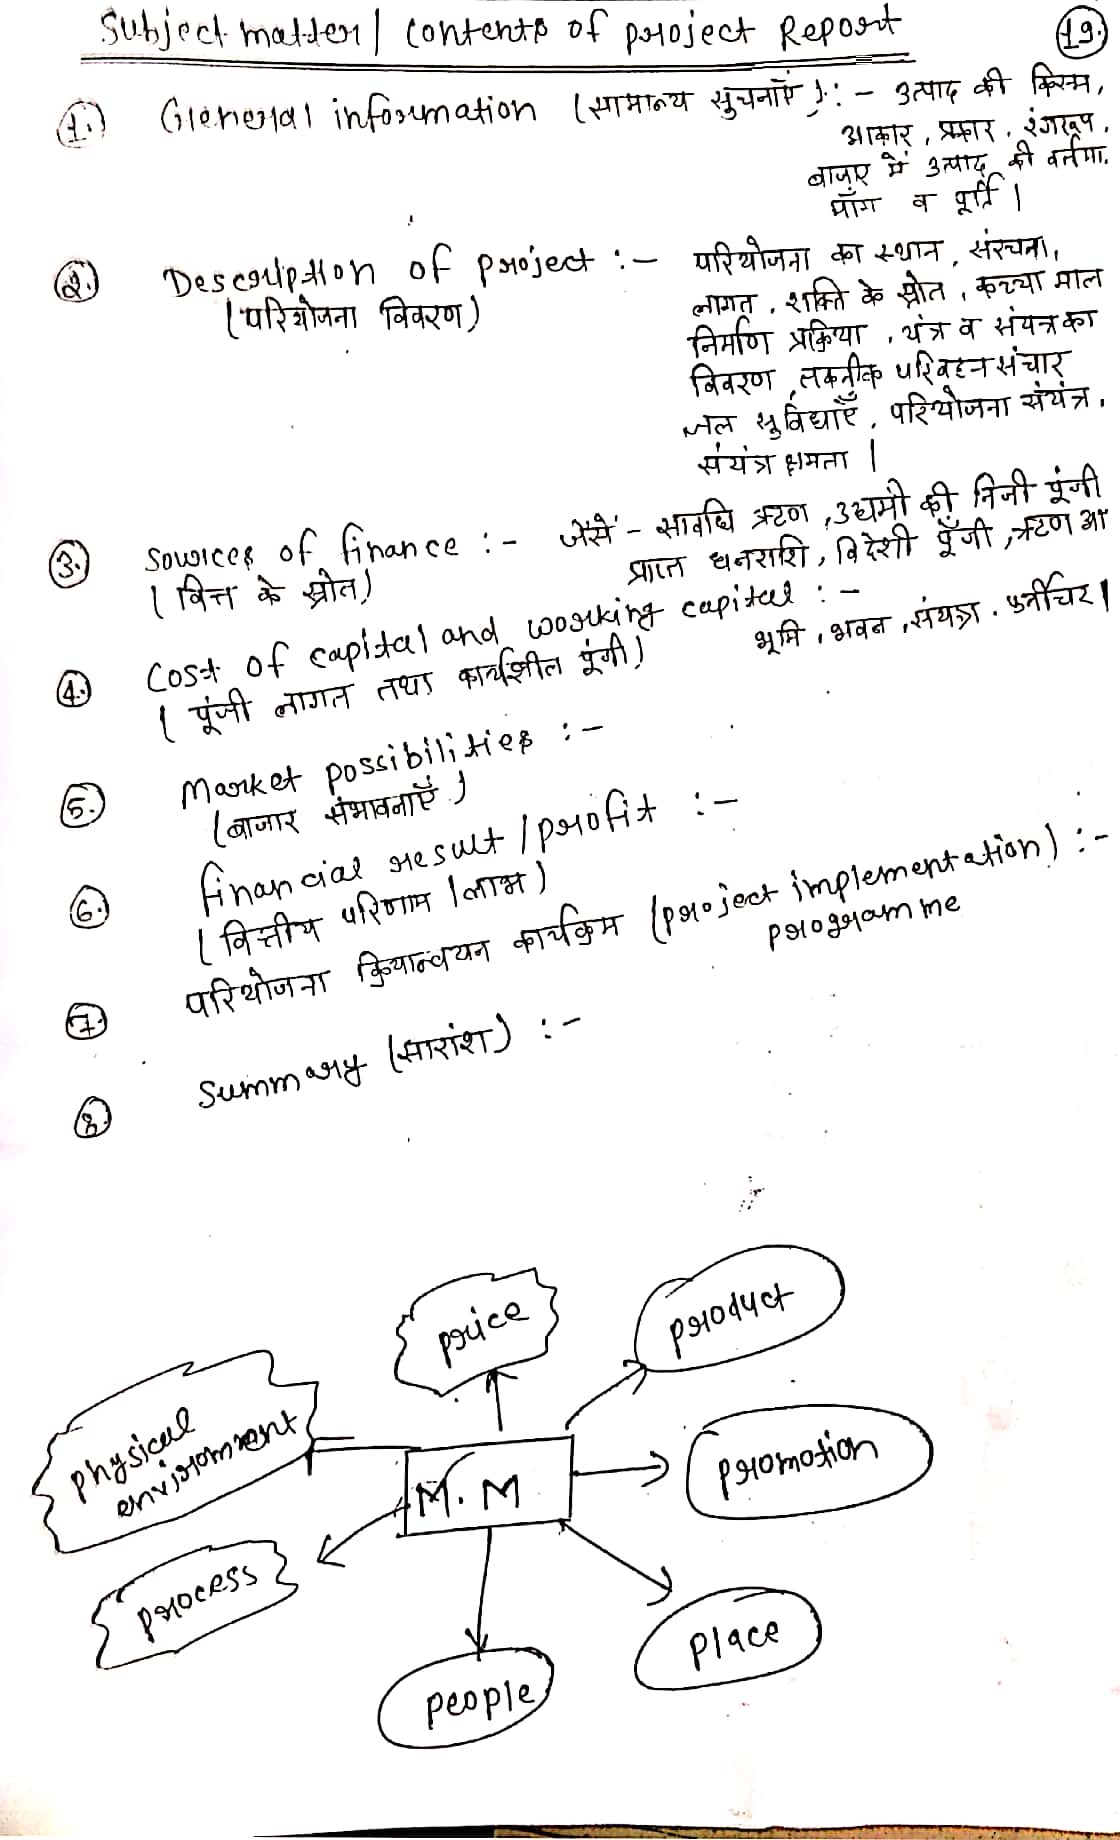 Subject matter / contents of project Report
19.
1.) General information (सामान्य सुचनाएँ) :- उत्पाद की किस्म,
आकार, प्रकार, रंगरूप,
बाजार में उत्पाद की वर्तमा.
माँग व पूर्ति।
2.) Description of project :- परियोजना का स्थान, संरचना,
(परियोजना विवरण)
लागत, शक्ति के स्रोत, कच्चा माल
निर्माण प्रक्रिया, यंत्र व संयत्र का
विवरण, तकनीक परिवहन संचार
जल सुविधाएँ, परियोजना संयंत्र,
संयंत्र क्षमता।
3.) Sources of finance :- जैसे - सावधि ऋण, उद्यमी की निजी पूंजी
(वित्त के स्रोत)
प्राप्त धनराशि, विदेशी पूँजी, ऋण आ
4.) Cost of capital and working capital :-
(पूंजी लागत तथा कार्यशील पूंजी)
भूमि, भवन, संयत्र, फर्नीचर।
5.) Market possibilities :-
(बाजार संभावनाएँ)
6.) financial result / profit :-
(वित्तीय परिणाम / लाभ)
7.) परियोजना क्रियान्वयन कार्यक्रम (project implementation) :-
programme
8.) Summary (सारांश) :-
price
product
physical
environment
M.M
promotion
process
place
people